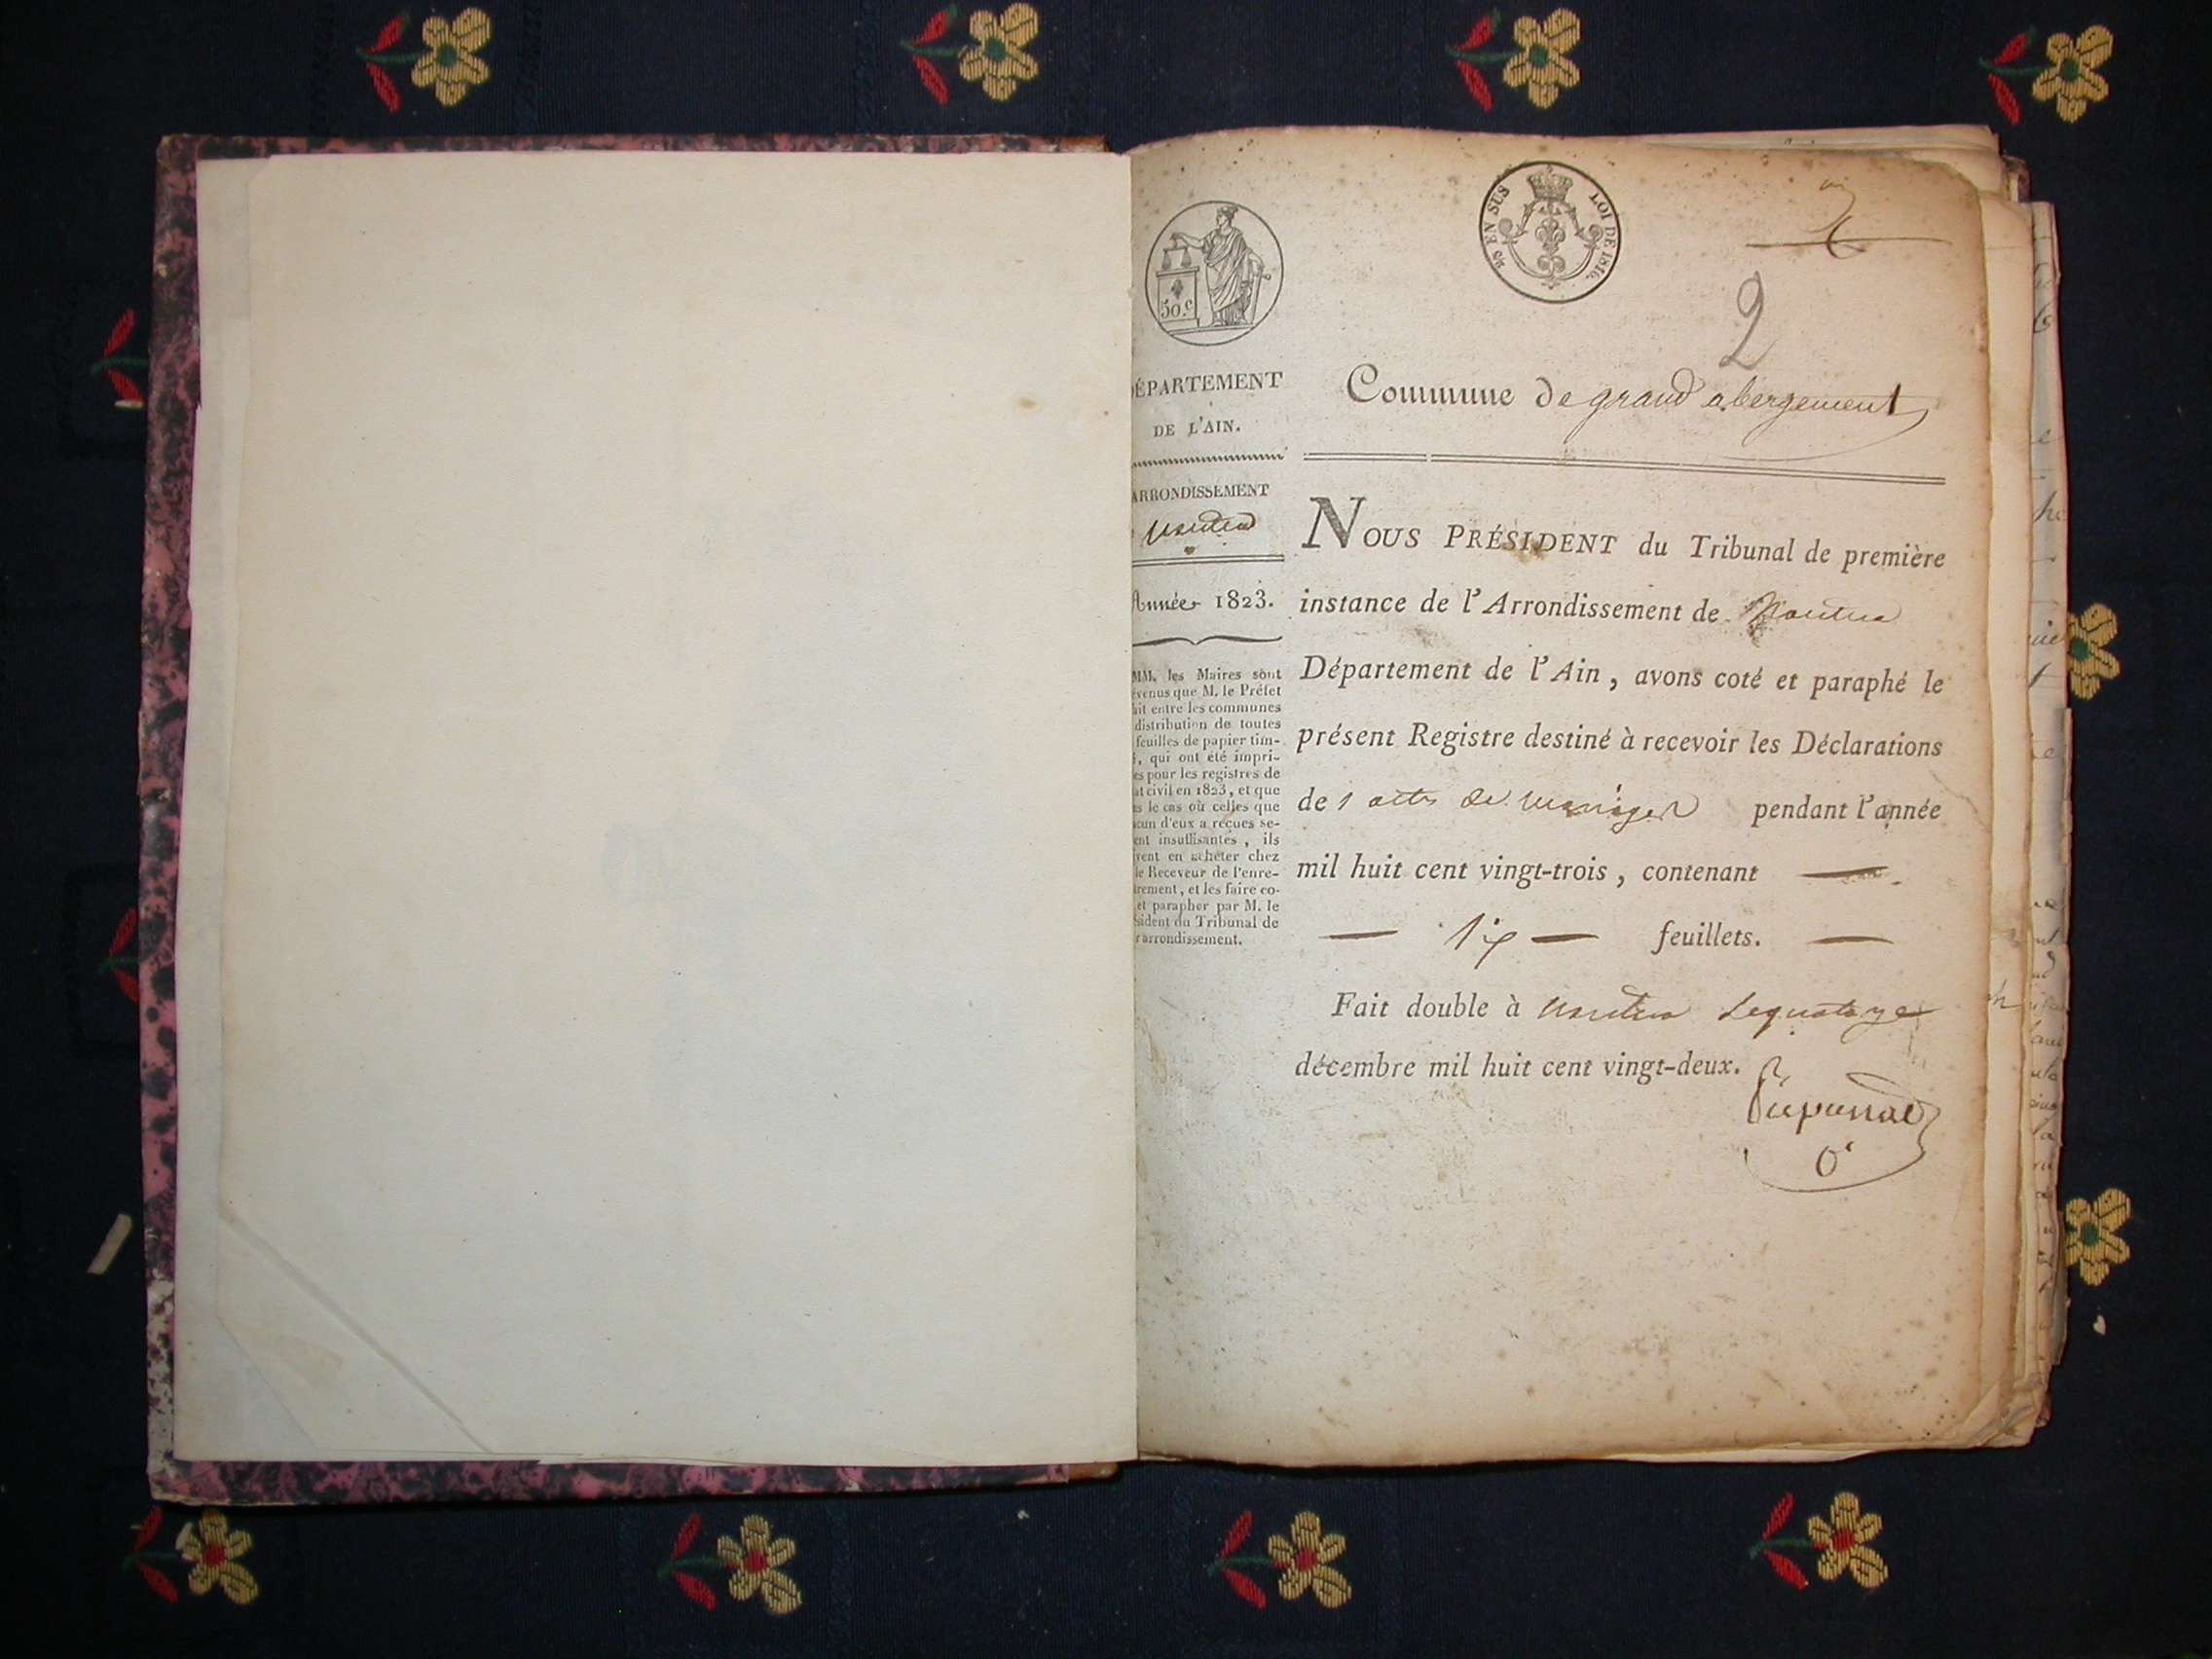 50.c
EN SUS
LOI DE 1816.
2
DÉPARTEMENT
DE L'AIN.
ARRONDISSEMENT
Nantua
Année 1823.
MM. les Maires sont
évenus que M. le Préfet
ait entre les communes
distribution de toutes
feuilles de papier tim-
é, qui ont été impri-
es pour les registres de
at civil en 1823, et que
ns le cas où celles que
acun d'eux a reçues se-
ent insuffisantes, ils
ivent en acheter chez
le Receveur de l'enre-
irement, et les faire co-
et parapher par M. le
ésident du Tribunal de
r arrondissement.
Commune de grand abergement
NOUS PRÉSIDENT du Tribunal de première
instance de l'Arrondissement de Nantua
Département de l'Ain, avons coté et paraphé le
présent Registre destiné à recevoir les Déclarations
des actes de mariages pendant l'année
mil huit cent vingt-trois, contenant —
— six — feuillets. —
Fait double à Nantua le quatorze
décembre mil huit cent vingt-deux.